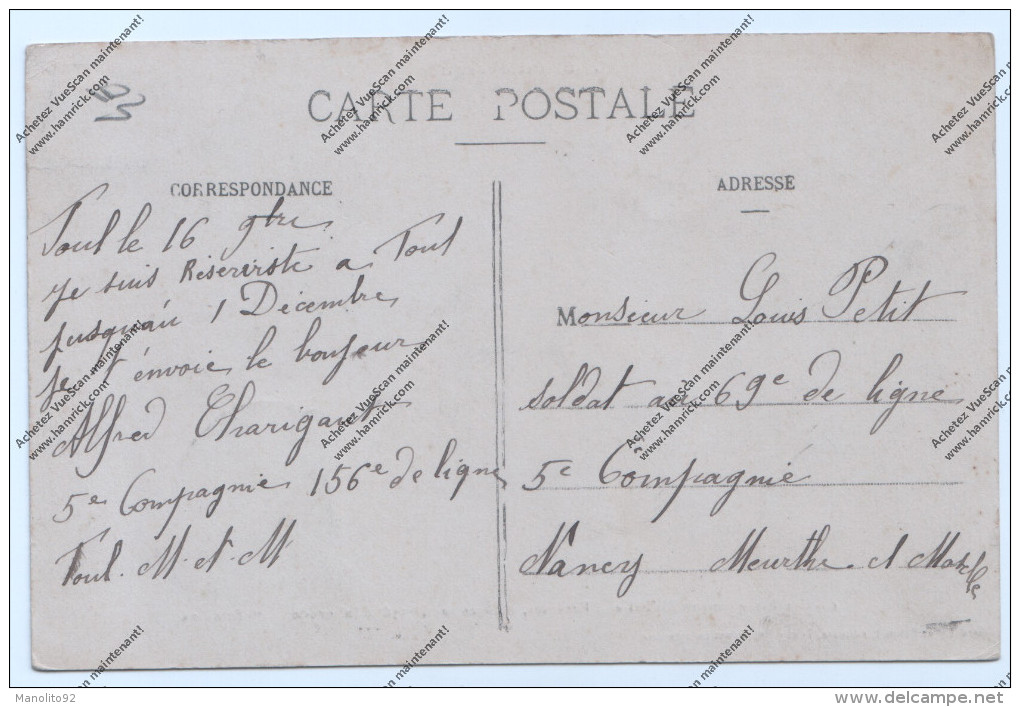 CARTE POSTALE
CORRESPONDANCE
Toul le 16 9bre
Je suis Réserviste a Toul
jusqu'au 1 Décembre
je t'envoie le bonjour
Alfred
5e Compagnie 156e de ligne
Toul. M-et-M
ADRESSE
Monsieur Louis Petit
soldat au 69e de ligne
5e Compagnie
Nancy Meurthe et Moselle
Achetez VueScan maintenant!
www.hamrick.com
Manolito92
www.delcampe.net